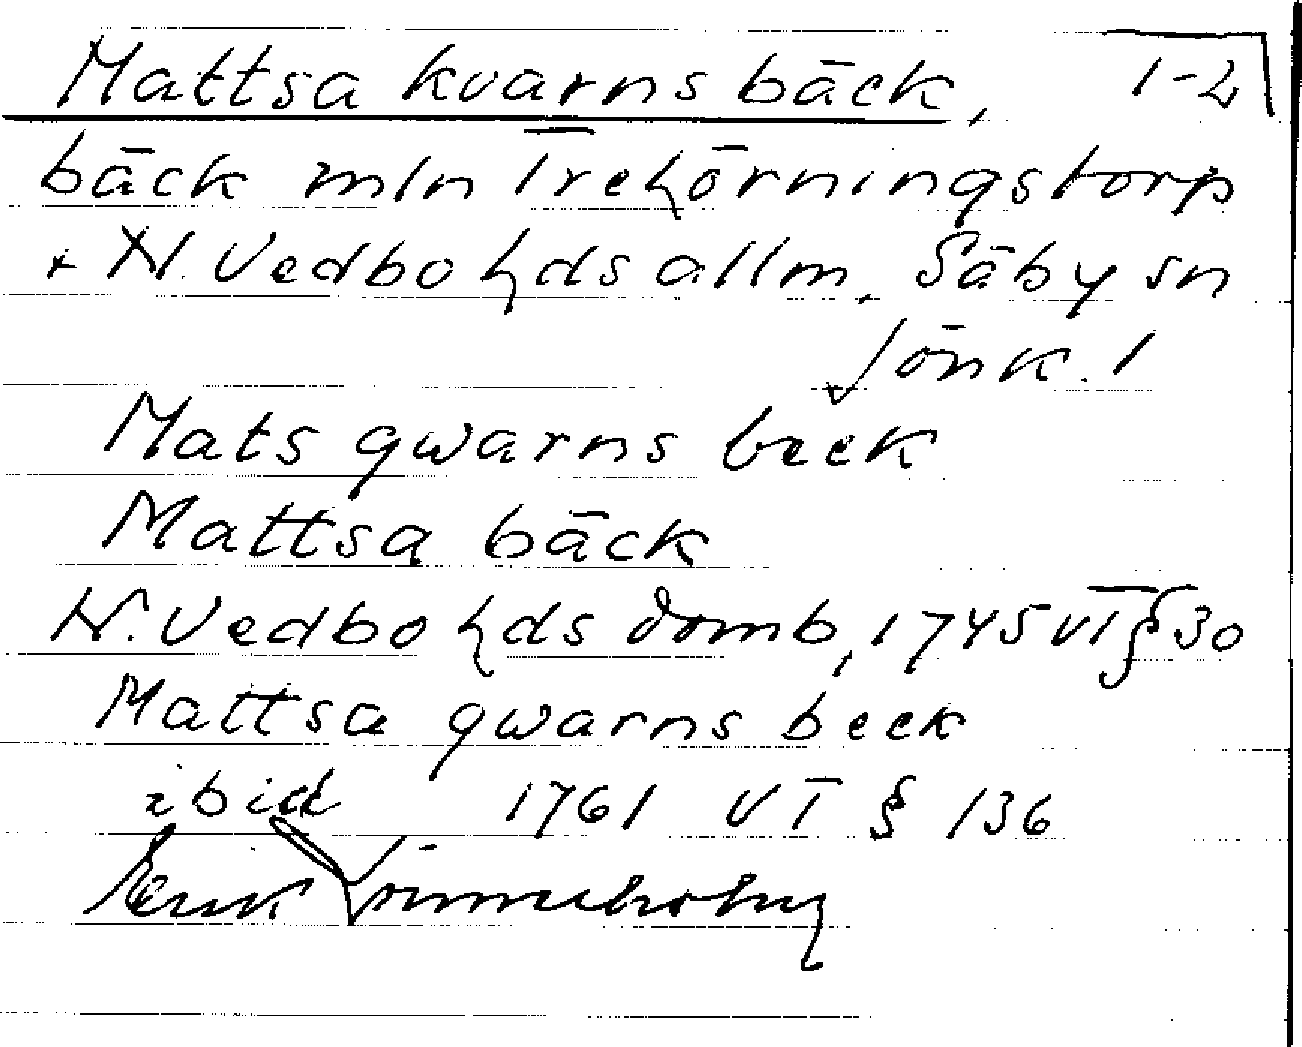 Mattsa kvarns bäck, 1-2
bäck mln Trehörningstorp
+ N. Vedbo hds allm. Säby sn
Jönk. l
Mats qwarns beck
Mattsa bäck
N. Vedbo hds domb, 1745 VT § 30
Mattsa qwarns beck
ibid 1761 VT § 136
Erik